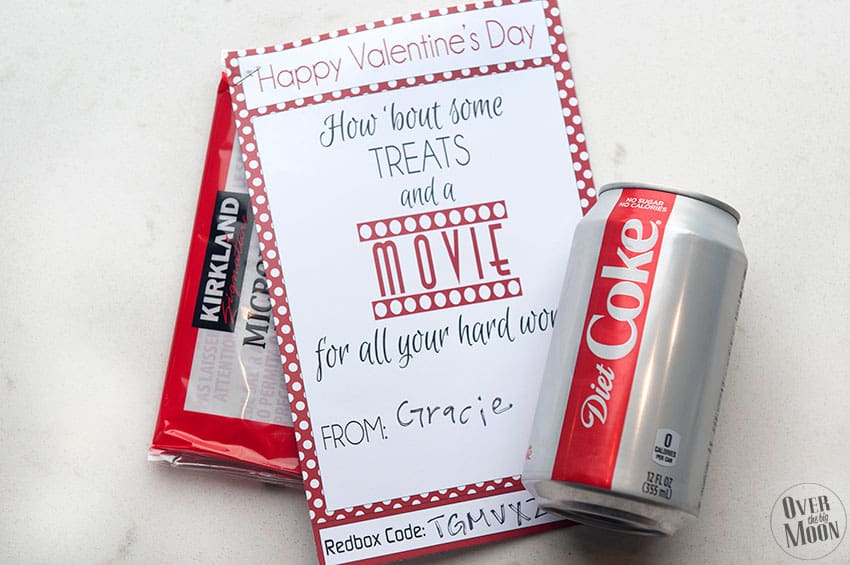 Happy Valentine's Day
How 'bout some
TREATS
and a
MOVIE
for all your hard
FROM: Gracie
Redbox Code: TGMVXZ
KIRKLAND
Signature
NO SUGAR
NO CALORIES
Diet Coke
0
CALORIES
PER CAN
12 FL OZ
(355 mL)
OVER
the big
MOON